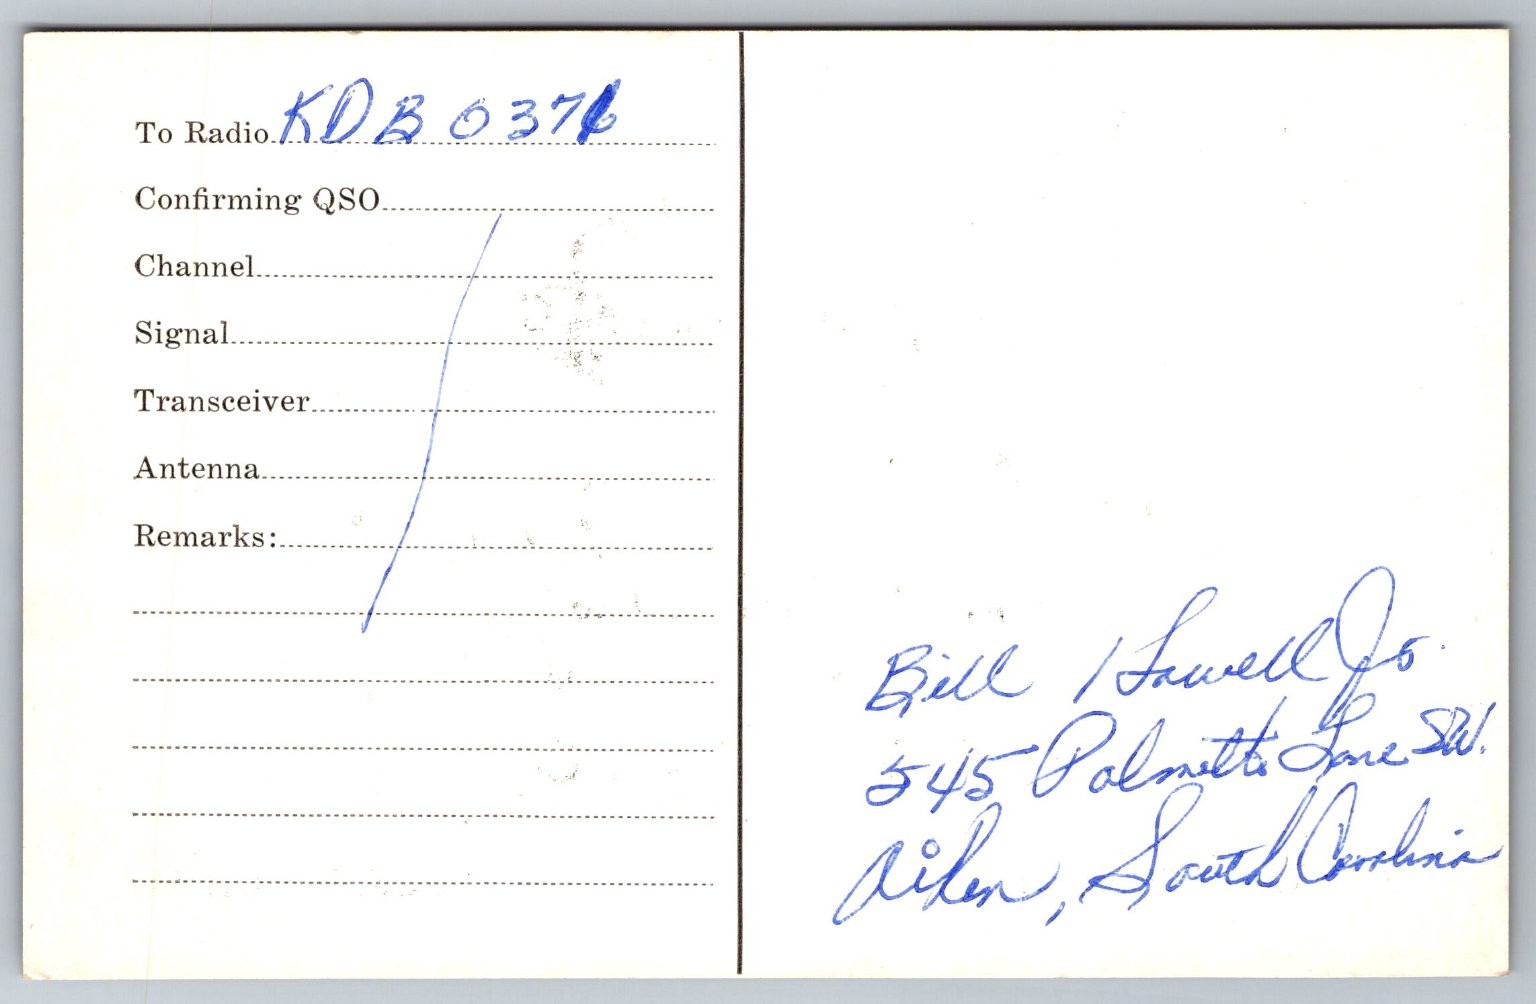 To Radio KDB 037
Confirming QSO
Channel
Signal
Transceiver
Antenna
Remarks:
Bill Howell Jr.
545 Palmetto Lane SW.
Aiken, South Carolina